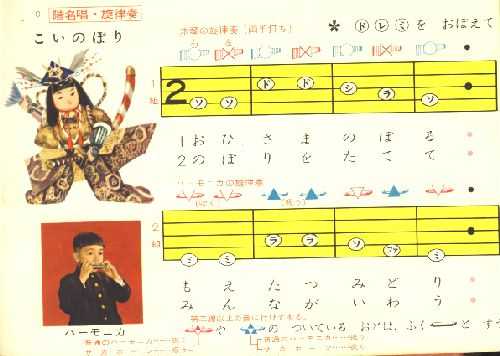 階名唱・旋律奏
こいのぼり
木琴の旋律奏（両手打ち）
＊ ドレミを おぼえて
1組
2 ソ ソ ド ド シ ラ ソ
1 お ひ さ ま の ぼ る
2 の ぼ り を た て て
ハーモニカの旋律奏
(吹く) (吸う)
2組
ミ ミ ラ ラ ソ ファ ミ
も え た つ み ど り
み ん な が い わ う
ハーモニカ
や の ついている おとは、ふく